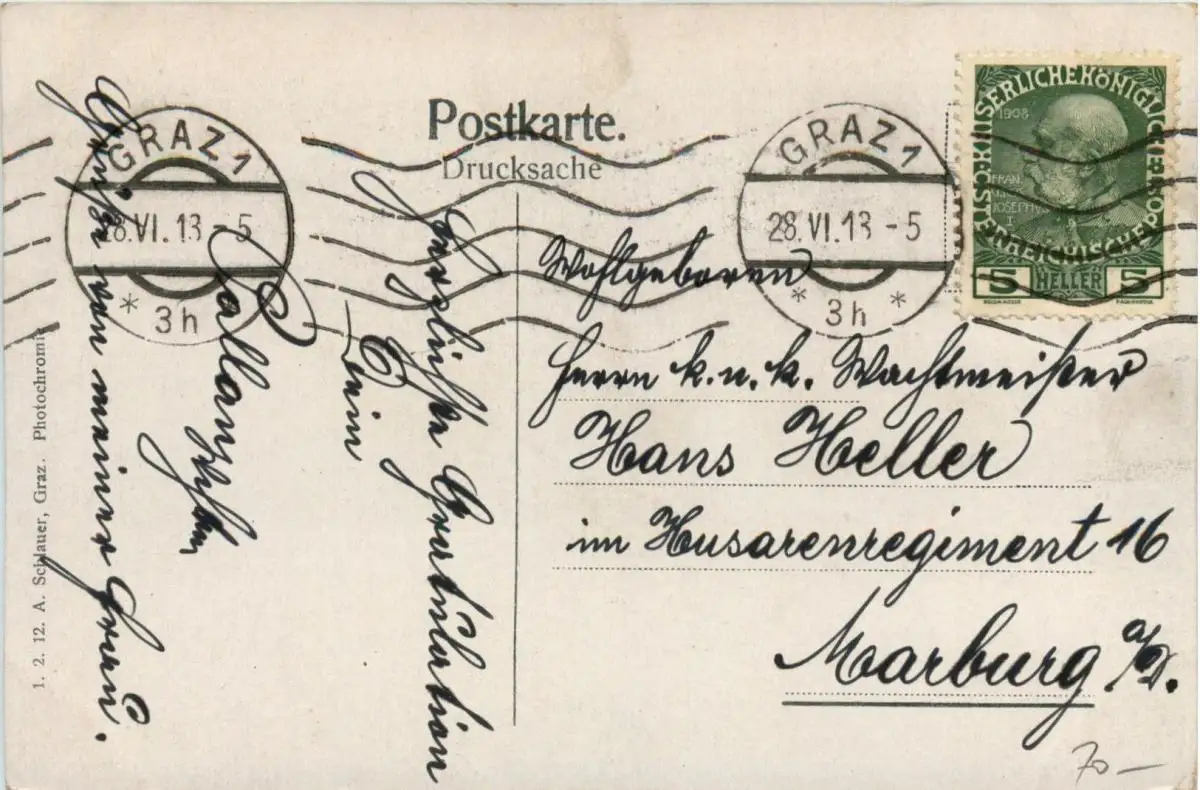 Postkarte.
Drucksache
GRAZ 1
28. VI. 13 - 5
* 3h
GRAZ 1
28. VI. 13 - 5
* 3h *
KAISERLICHE KÖNIGLICHE POST
ÖSTERREICHISCHE
1908
FRAN
JOSEPHVS
I
5 HELLER 5
Herzlichste Gratulation
Dein
Grüße von meiner Frau.
Wohlgeboren
Herrn k. u. k. Wachtmeister
Hans Heller
im Husarenregiment 16
Marburg a/D.
1. 2. 12. A. Schlauer, Graz. Photochromie
70 —